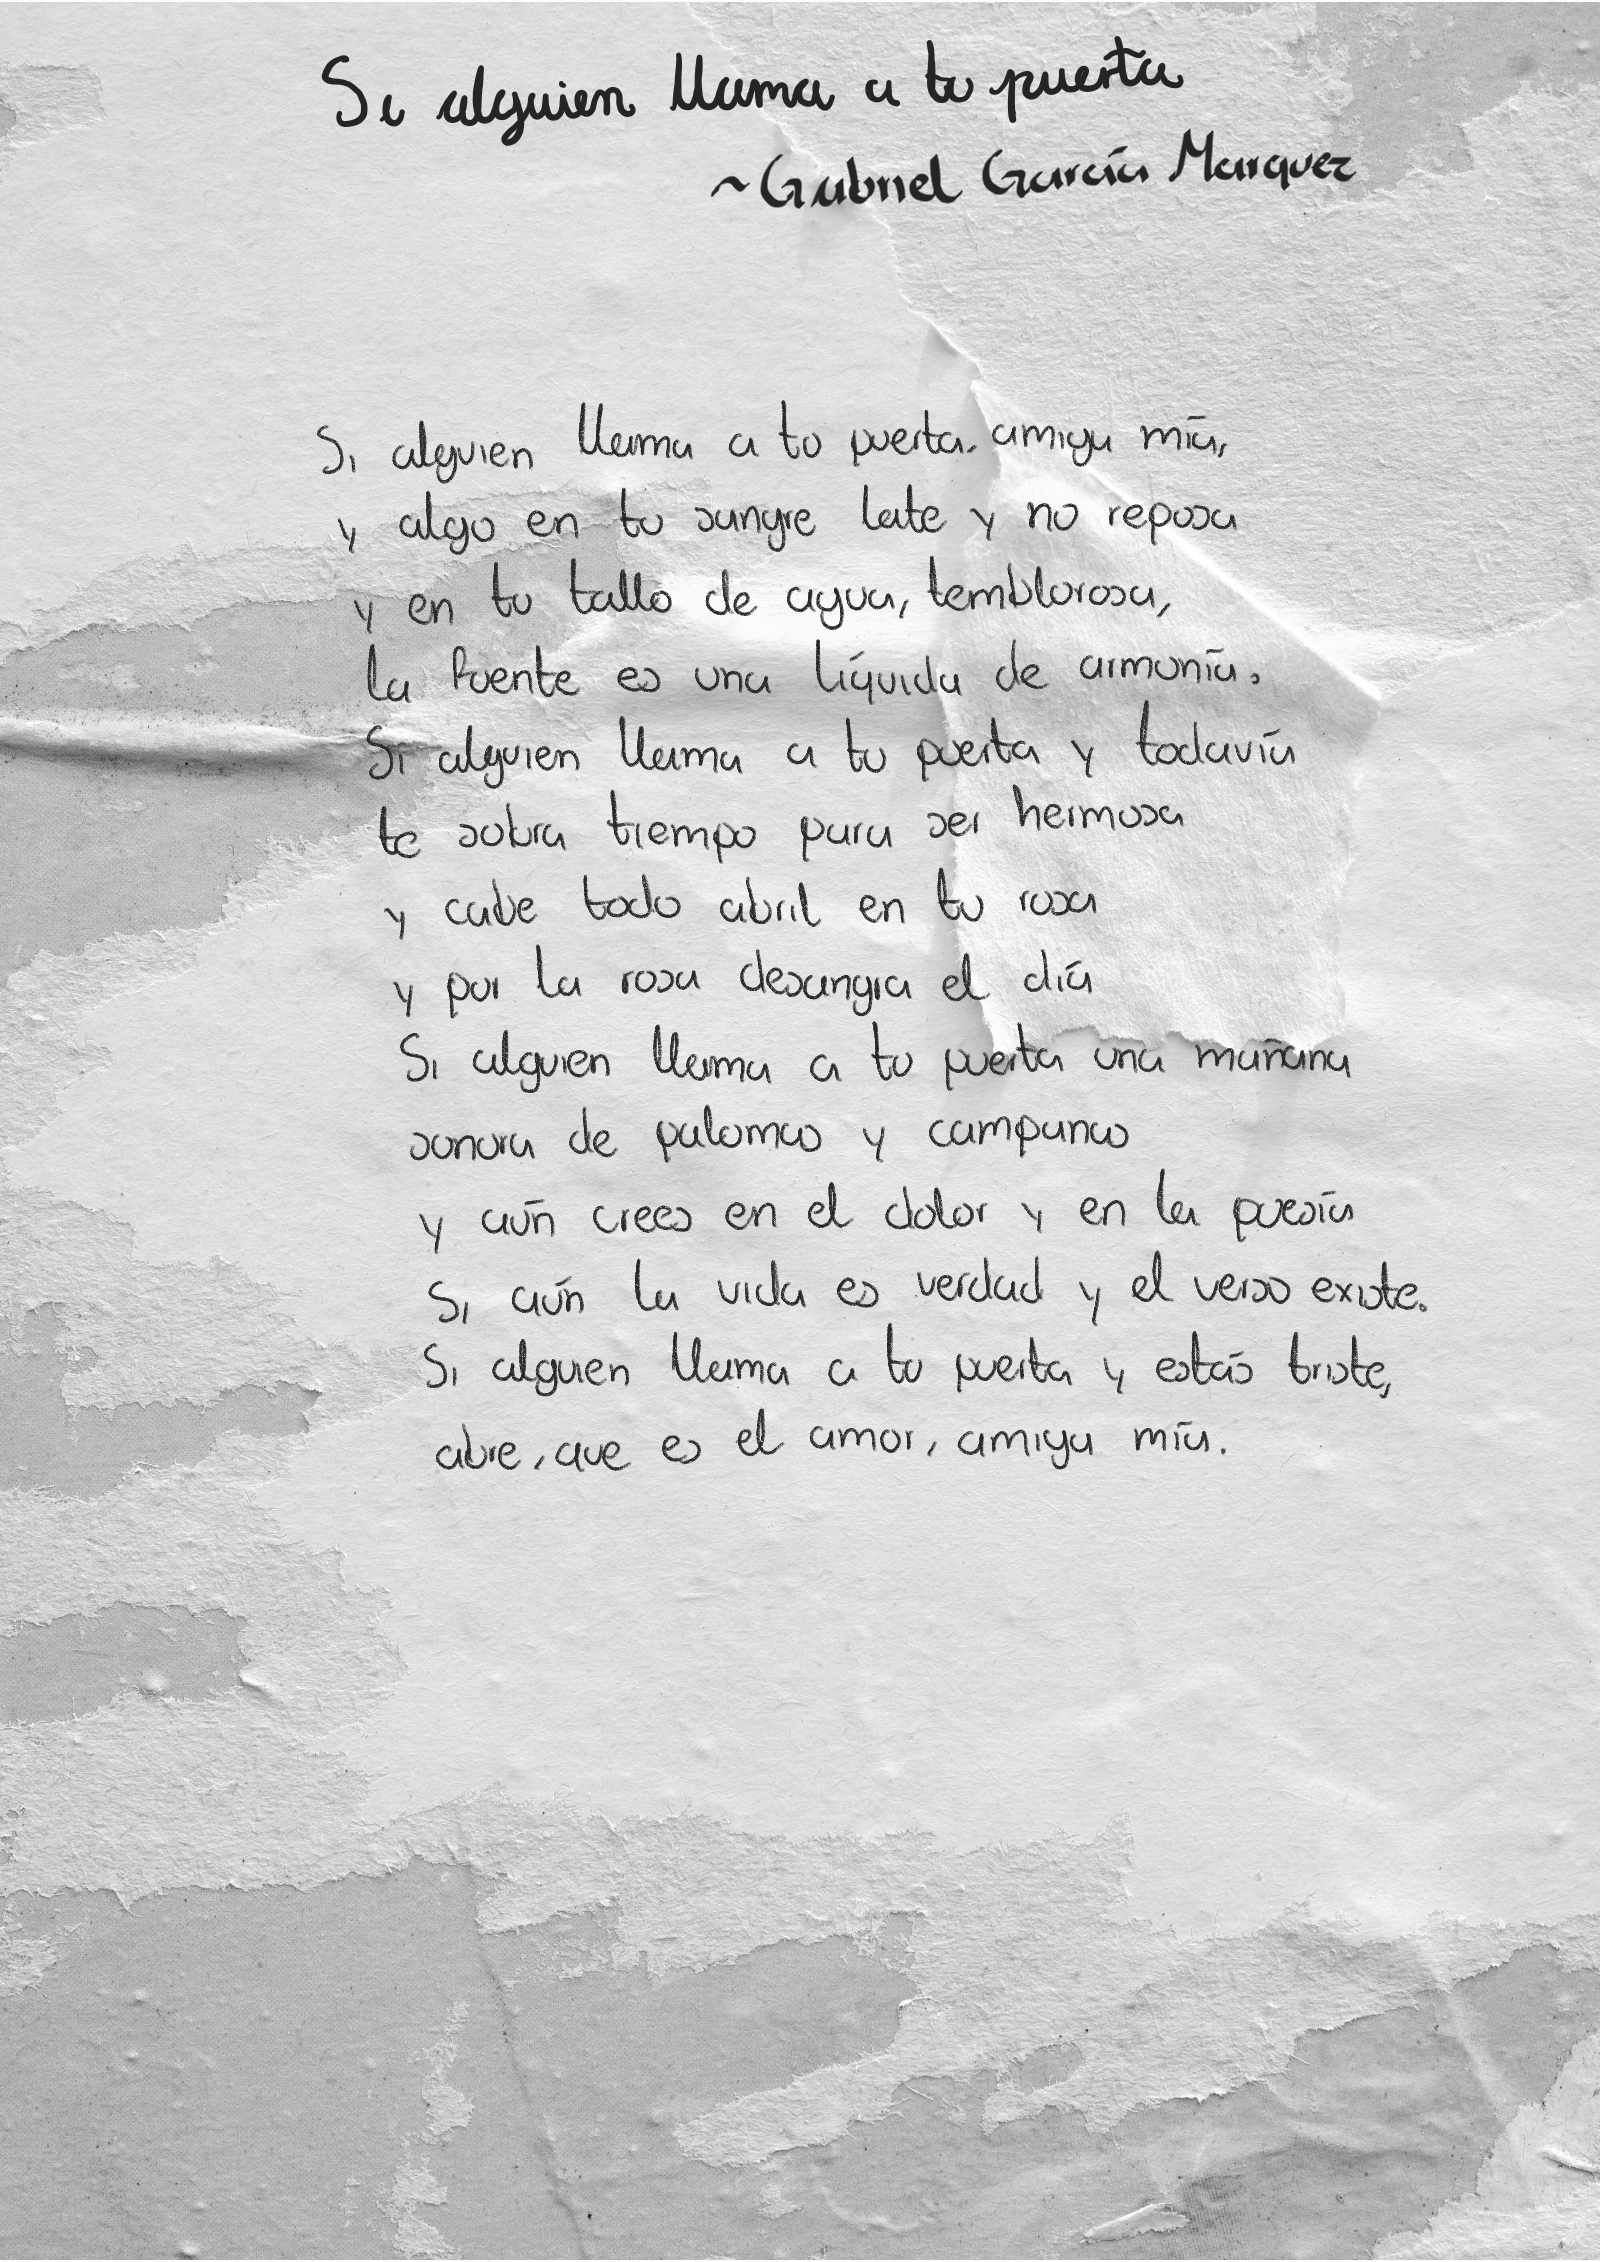 Si alguien llama a tu puerta
~Gabriel García Marquez
Si alguien llama a tu puerta. amiga mía,
y algo en tu sangre late y no reposa
y en tu tallo de agua, temblorosa,
la fuente es una líquida de armonía.
Si alguien llama a tu puerta y todavía
te sobra tiempo para ser hermosa
y cabe todo abril en tu rosa
y por la rosa desangra el día
Si alguien llama a tu puerta una mañana
sonora de palomas y campanas
y aún crees en el dolor y en la poesía
Si aún la vida es verdad y el verso existe.
Si alguien llama a tu puerta y estás triste,
abre, que es el amor, amiga mía.